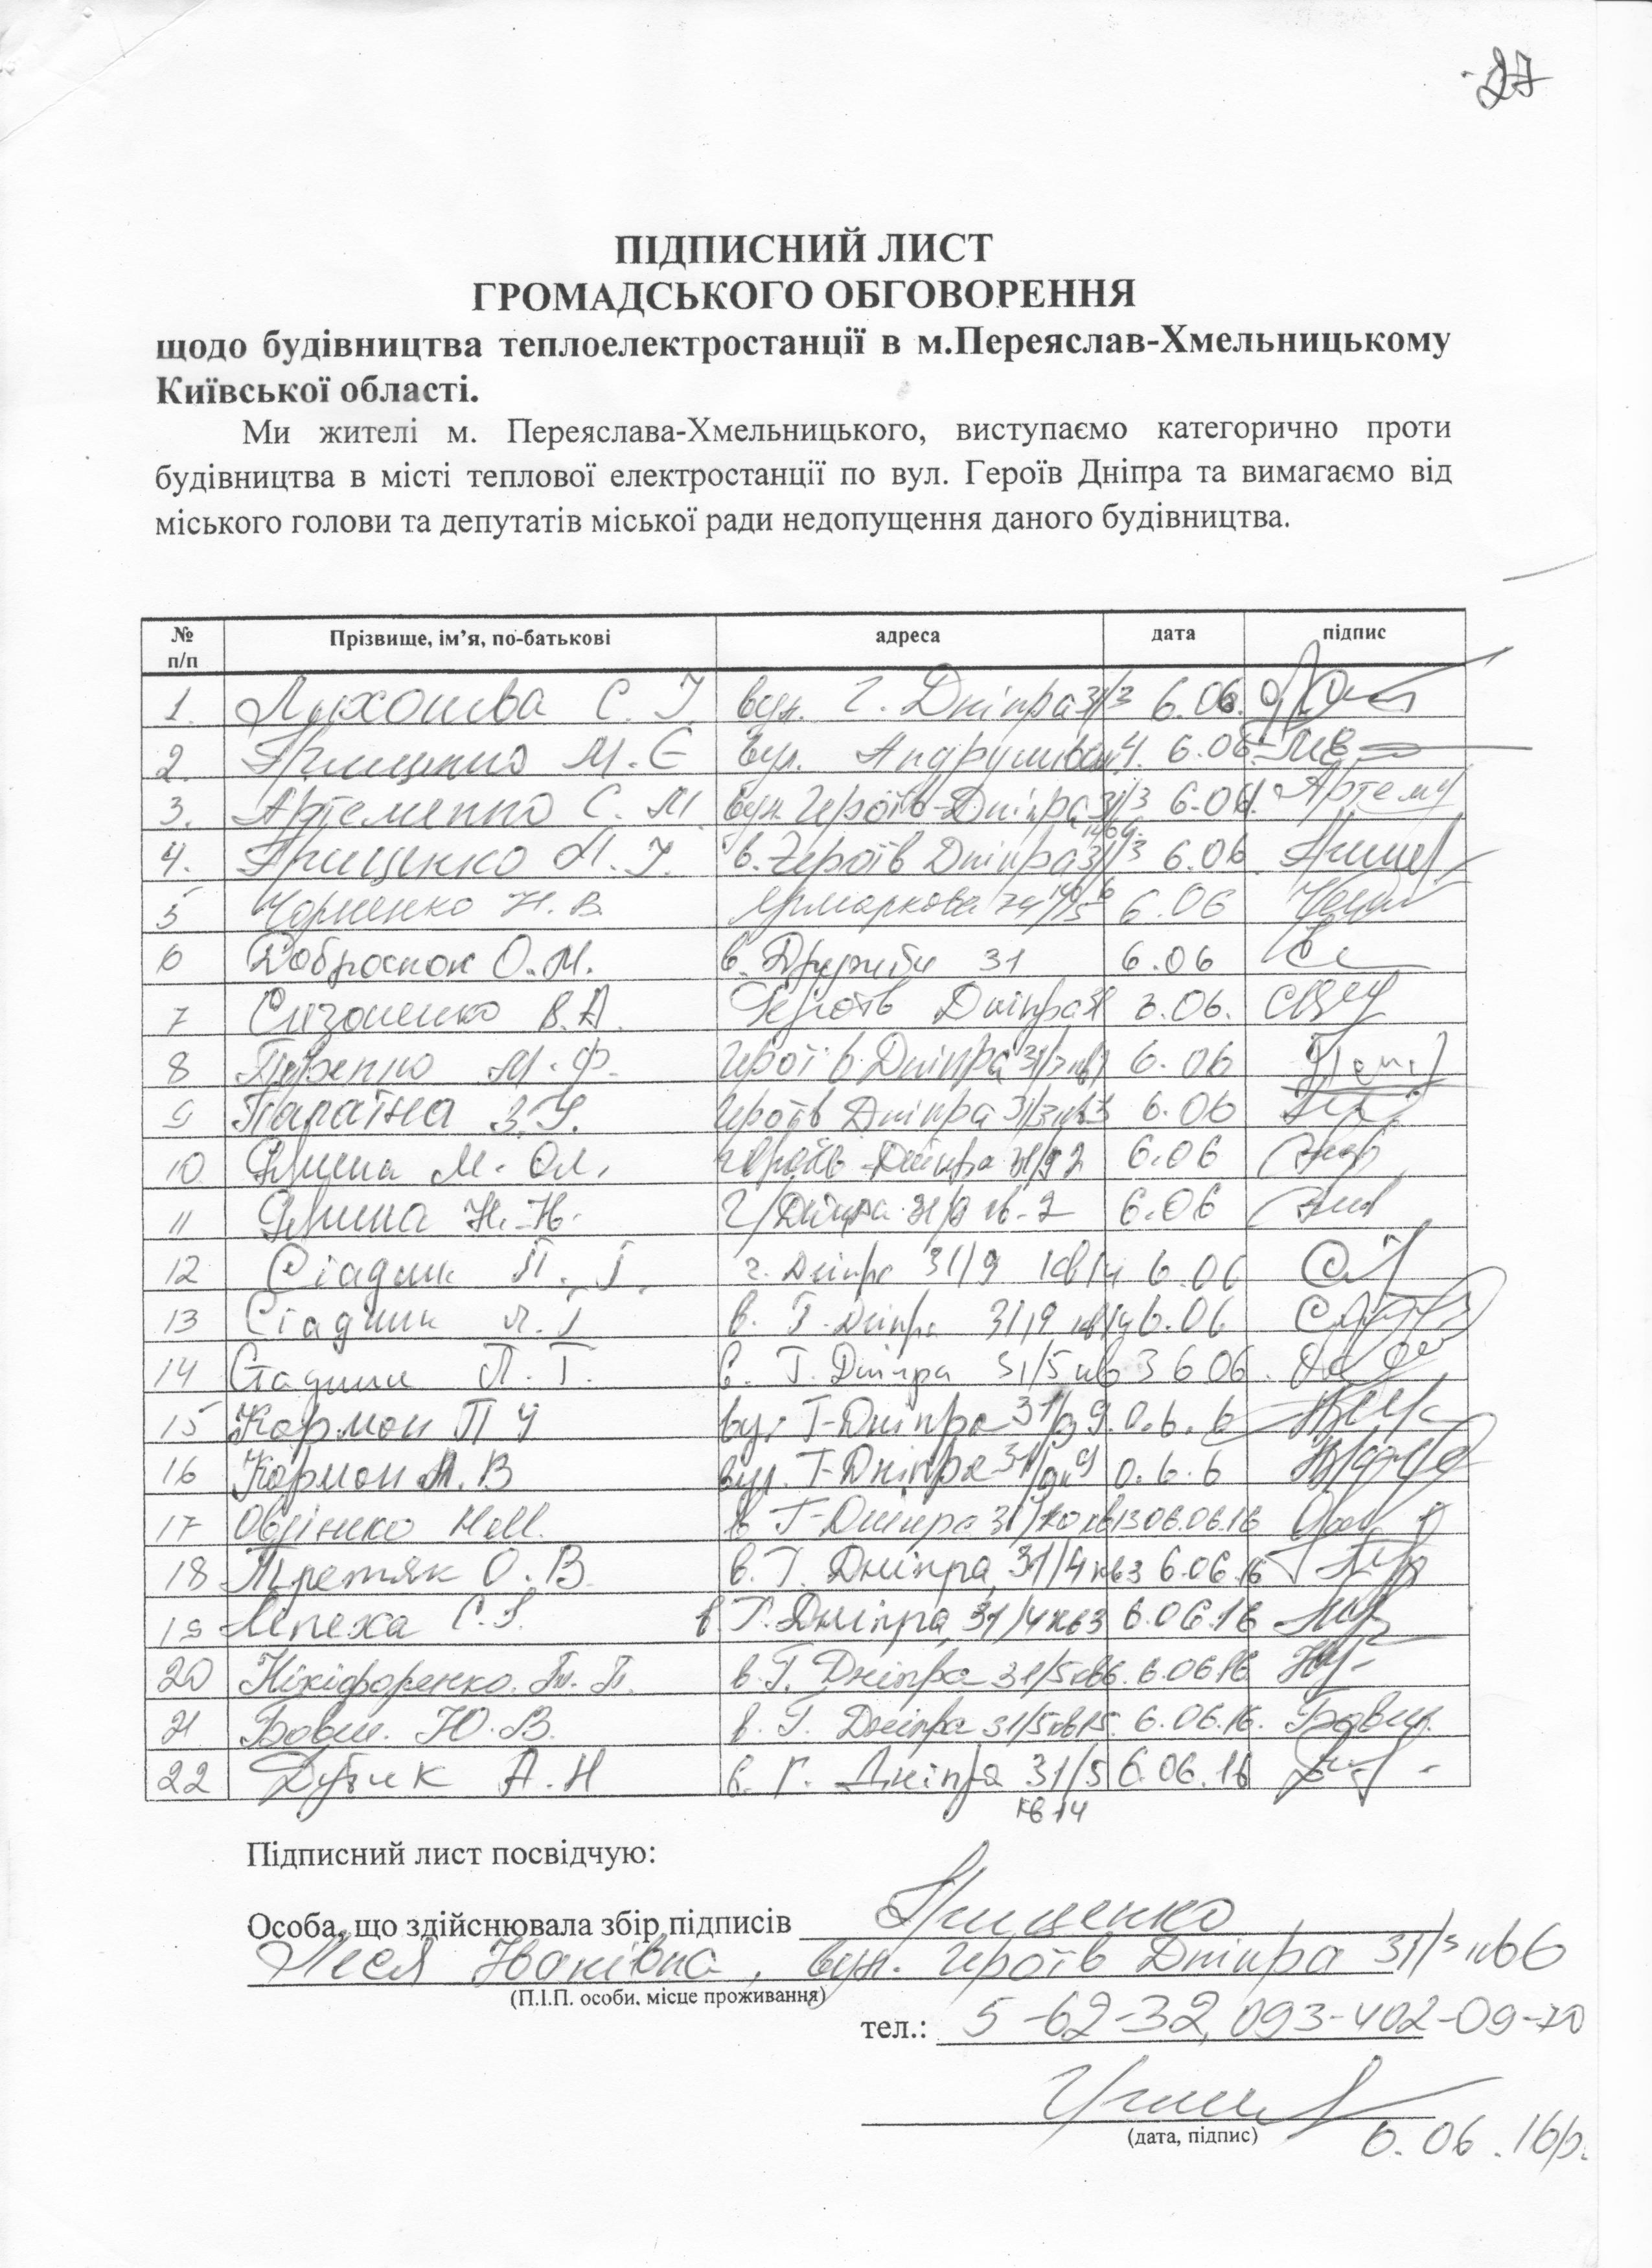 27
ПІДПИСНИЙ ЛИСТ
ГРОМАДСЬКОГО ОБГОВОРЕННЯ
щодо будівництва теплоелектростанції в м.Переяслав-Хмельницькому
Київської області.
Ми жителі м. Переяслава-Хмельницького, виступаємо категорично проти
будівництва в місті теплової електростанції по вул. Героїв Дніпра та вимагаємо від
міського голови та депутатів міської ради недопущення даного будівництва.
№ п/п Прізвище, ім’я, по-батькові адреса дата підпис
1. С. І. вул. Г. Дніпра 31/3 6.06.
2. Грищенко М.Є вул. 6.06.
3. Артеменко С. М. вул. Героїв-Дніпра 31/3 6.06. Артему
4. Грищенко Л. І. в. Героїв Дніпра 31/3 6.06
5 Чорненко Н. В. Ярмаркова 6.06
6 Доброскок О.М. в. Дружби 31 6.06
7 Сизоненко В.А. Героїв Дніпра 31 06.
8 М.Ф. Героїв Дніпра 6.06
9 З.У. Героїв Дніпра 6.06
10 М. Ол. Героїв Дніпра 31/9 2 6.06
11 Н. Н. Г/Дніпра 31/9 кв-2 6.06
12 Стадник П. Г. г. Дніпра 31/9 кв 14 6.06
13 Стадник Л.Г в. Г. Дніпра 31/9 кв 14 6.06
14 Стадник П. Г. в. Г. Дніпра 31/5 кв 3 6 06.
15 Кормон П Ч вул Г-Дніпра 31/9 0.6.6
16 Кормон М. В вул. Г-Дніпра 31/9 0.6.6
17 Овдієнко Н.М. в Г-Дніпра 31/10 кв13 06.06.16
18 Третяк О.В. в. Г. Дніпра, 31/4 кв3 6.06.16
19 Лепеха С.І. в. Г. Дніпра, 31/4 кв3 6.06.16
20 Нікіфоренко. Т. П. в. Г. Дніпра 31/5 кв6. 6.06.16
21 Бовш. Ю.В. в. Г. Дніпра 31/5 кв15. 6.06.16. Бовш.
22 Дубик А.Н в. Г. Дніпра 31/5 6.06.16
кв 14
Підписний лист посвідчую:
Особа, що здійснювала збір підписів Грищенко
Леся Іванівна, вул. Героїв Дніпра 31/3 кв 6
(П.І.П. особи, місце проживання)
тел.: 5-62-32, 093-402-09-70
(дата, підпис) 6.06.16р.